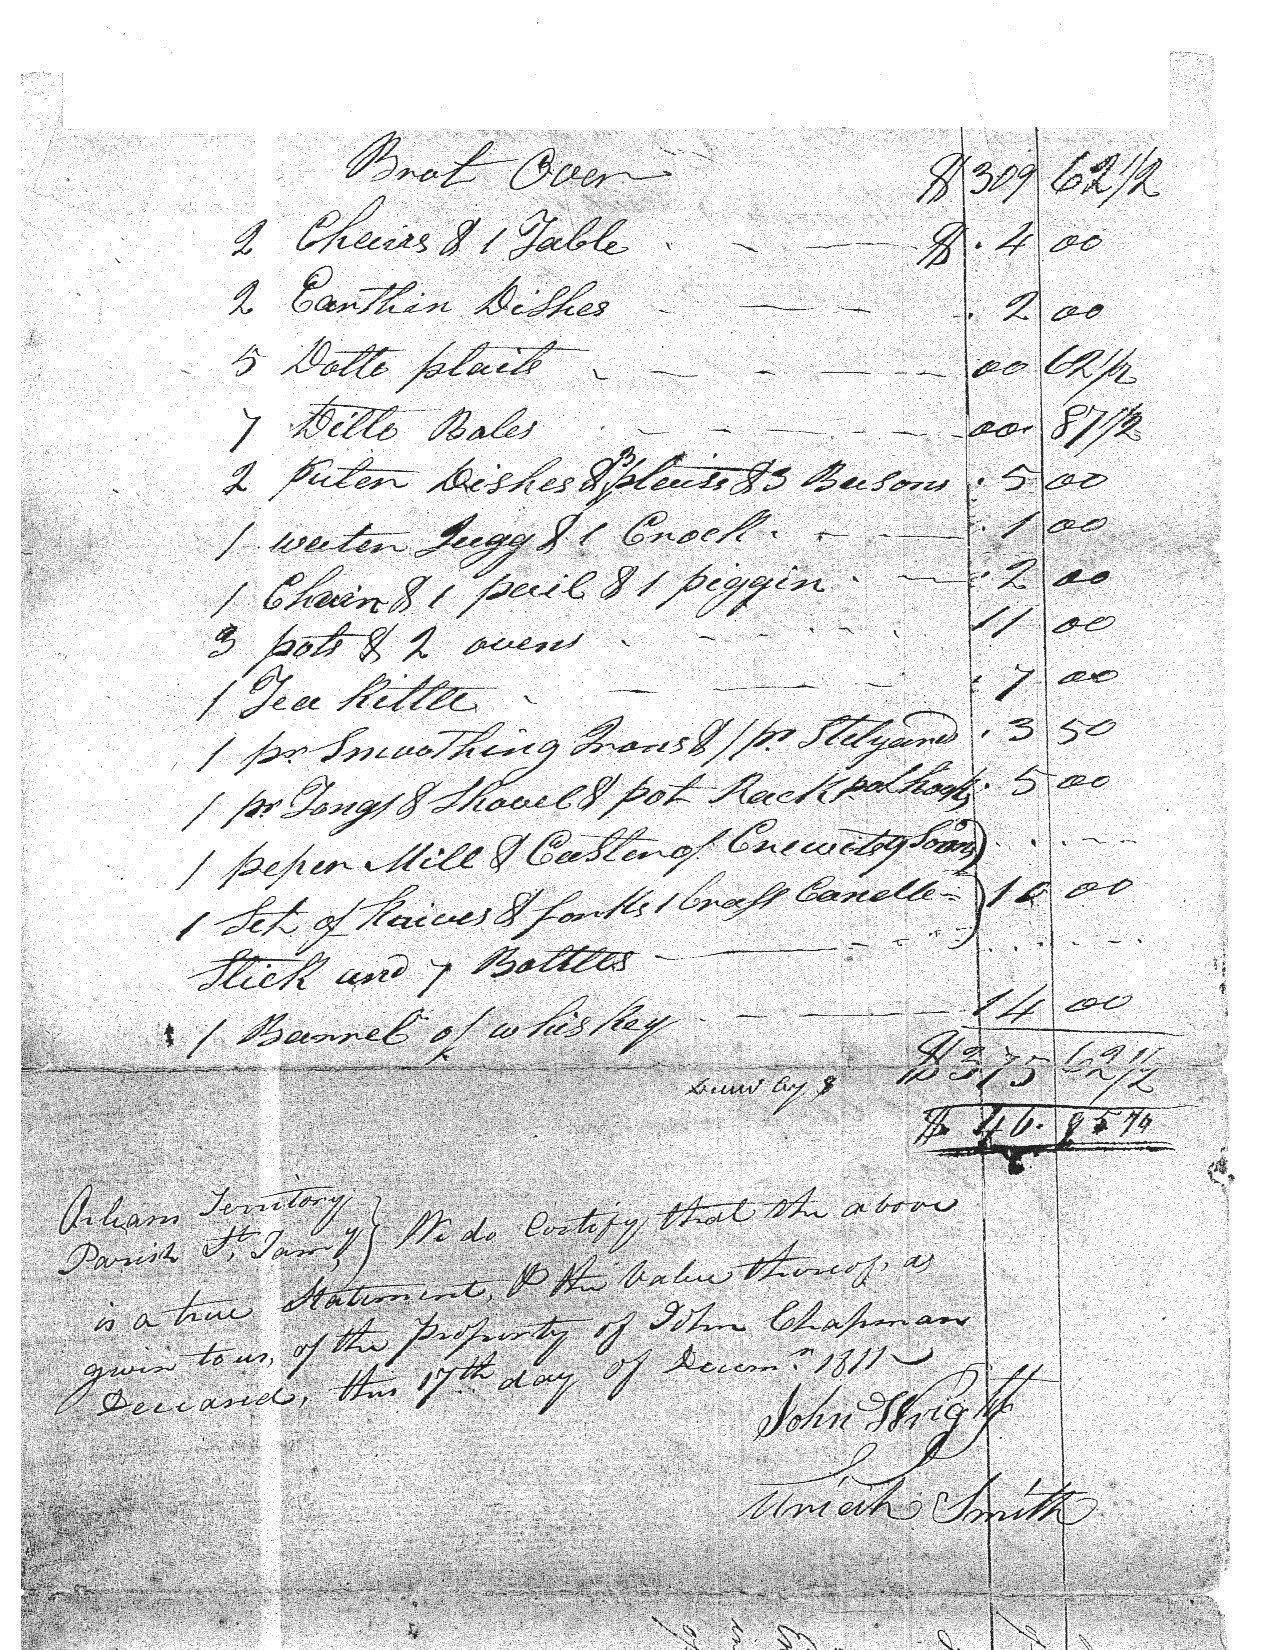 Brot Over $ 309 62 1/2
2 Chairs & 1 Table $ . 4 00
2 Earthin Dishes . 2 00
5 Dotto plaits 00 62 1/2
7 Ditto Boles 00 87 1/2
2 Puten Dishes & 3 plaits & 3 Basons . 5 00
1 waten Jugg & 1 Crock . 1 00
1 Chain & 1 pail & 1 piggin . 2 00
3 pots & 2 ovens 11 00
1 Tea Kittle . 7 00
1 pr Smoothing Irons & 1 pr Stilyard . 3 50
1 pr Tongs & Shovel & pot Rack pot hooks . 5 00
1 peper Mill & Caster of Crewits
1 Set of Knives & forks 1 brass Candle= 10 00
Stick and 7 Bottles
1 Barrel of whiskey 14 00
$ 375 62 1/2
$ 46. 85
Orleans Territory
Parish St. Tamy } We do Certify that the above
is a true Statement, & the Value thereof, as
givin to us, of the Property of John Chapman
Deceased, this 17th day of Decemr. 1811
John Wright
Uriah Smith